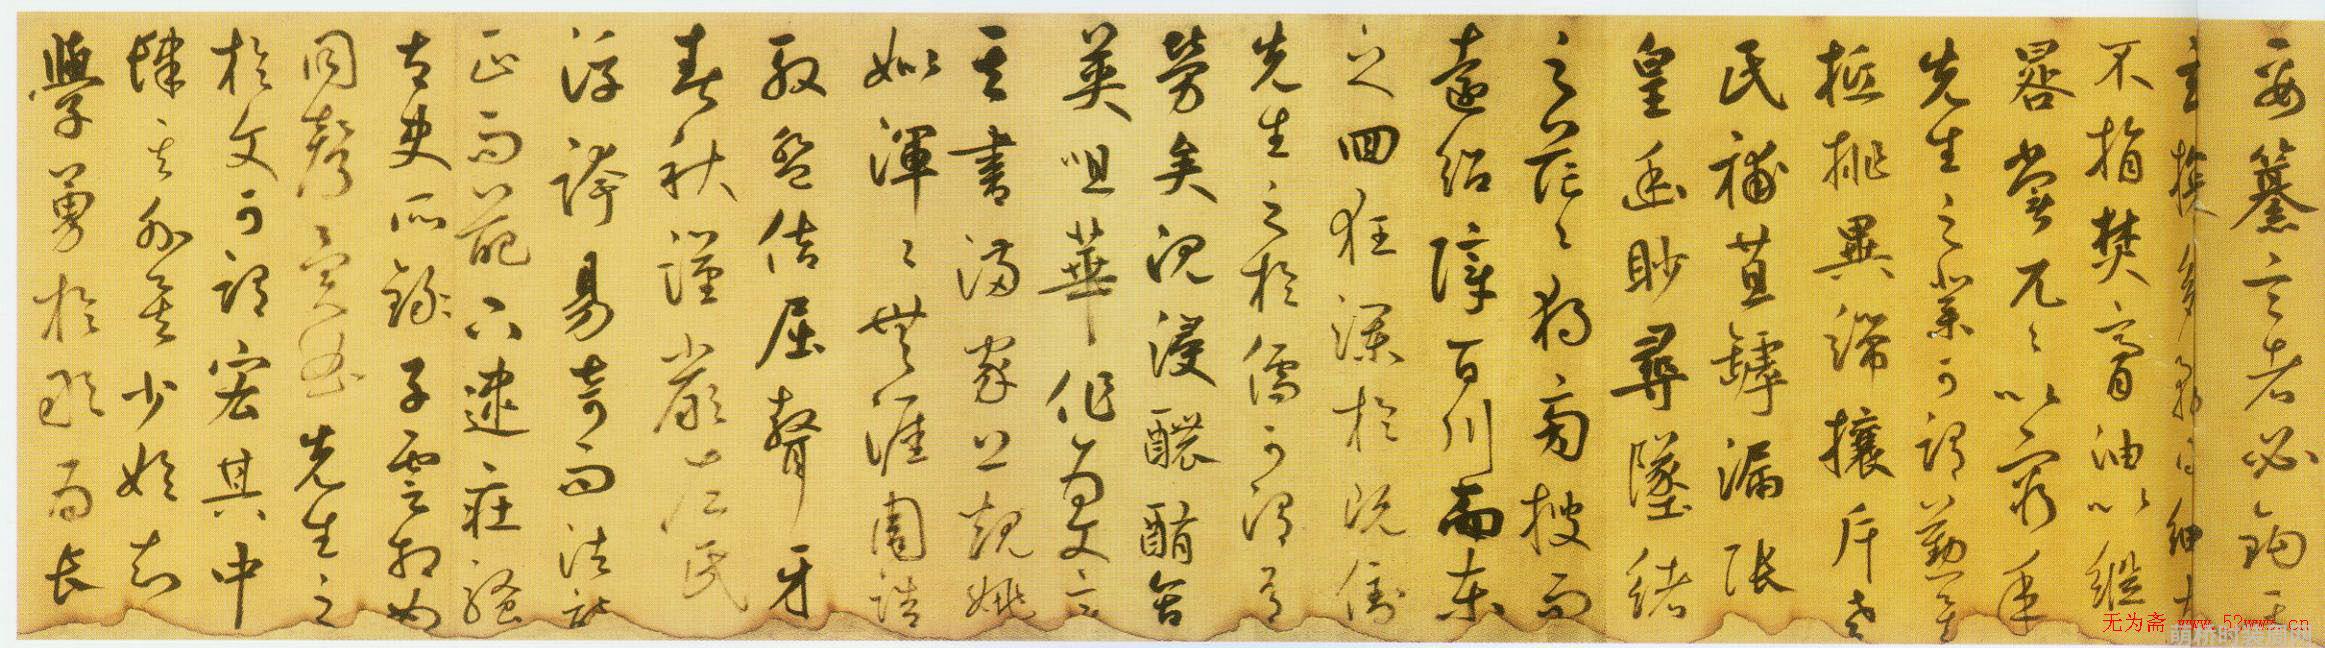 要纂言者必鉤其
玄多務得細大
不捐焚膏油以繼
晷常兀〻以窮年
先生之業可謂勤矣
抵排異端攘斥老
氏補苴罅漏張
皇幽眇尋墜緒
之茫〻獨旁搜而
遠紹障百川而東
之回狂瀾於既倒
先生之於儒可謂有
勞矣沉浸醲含
英咀華作為文章
其書滿家上規姚
姒渾〻無涯周誥
殷盤佶屈聱牙
春秋謹嚴左氏
浮誇易奇而法詩
正而葩下逮莊騷
太史所錄子雲相如
同聲異曲先生之
於文可謂宏其中
肆其外矣少始知
學勇於敢為長
无为斋 www.52wwz.cn